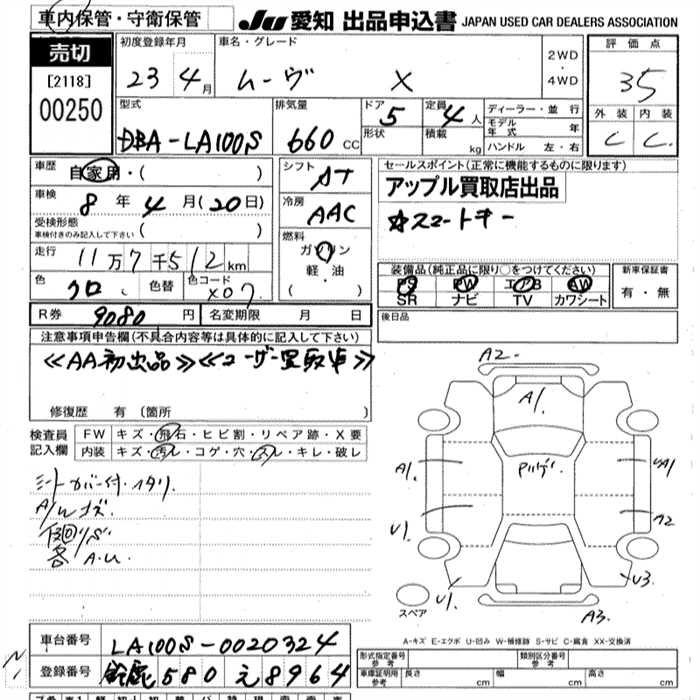 車内保管・守衛保管
JU 愛知 出品申込書 JAPAN USED CAR DEALERS ASSOCIATION
売切
[2118]
00250
初度登録年月
23 4月
車名・グレード
ムーヴ X
2WD
・
4WD
評価点
35
外装 内装
C C
型式
DBA-LA100S
排気量
660 CC
ドア 5
形状
定員 4人
積載 kg
ディーラー・並行
モデル年式 年
ハンドル 左・右
車歴 自家用・( )
車検 8年 4月(20日)
受検形態
車検付きのみ記入して下さい ( )
走行 11万7千512km
色 クロ 色替 色コード X07
シフト AT
冷房 AAC
燃料
ガソリン
軽・油
( )
セールスポイント(正常に機能するものに限ります)
アップル買取店出品
☆スマートキー
装備品(純正品に限り○をつけてください)
PS PW エアB AW
SR ナビ TV カワシート
新車保証書
有・無
R券 9080円 名変期限 月 日
後日品
注意事項申告欄(不具合内容等は具体的に記入して下さい)
≪AA初出品≫≪ユーザー買取車≫
修復歴 有(箇所 )
検査員
記入欄
FW キズ・飛石・ヒビ割・リペア跡・X要
内装 キズ・汚レ・コゲ・穴・スレ・キレ・破レ
シートカバー付・イタリ
A/Wキズ
各A.U.
A2
A1
A1
U1
A1
A2
U1
U3
A3
スペア
A-キズ E-エクボ U-凹み W-補修跡 S-サビ C-腐食 XX-交換済
車台番号 LA100S-0020324
登録番号 鈴鹿580え8964
形式指定番号
参考
類別区分番号
参考
車庫証明用
参考
長さ cm 幅 cm 高さ cm